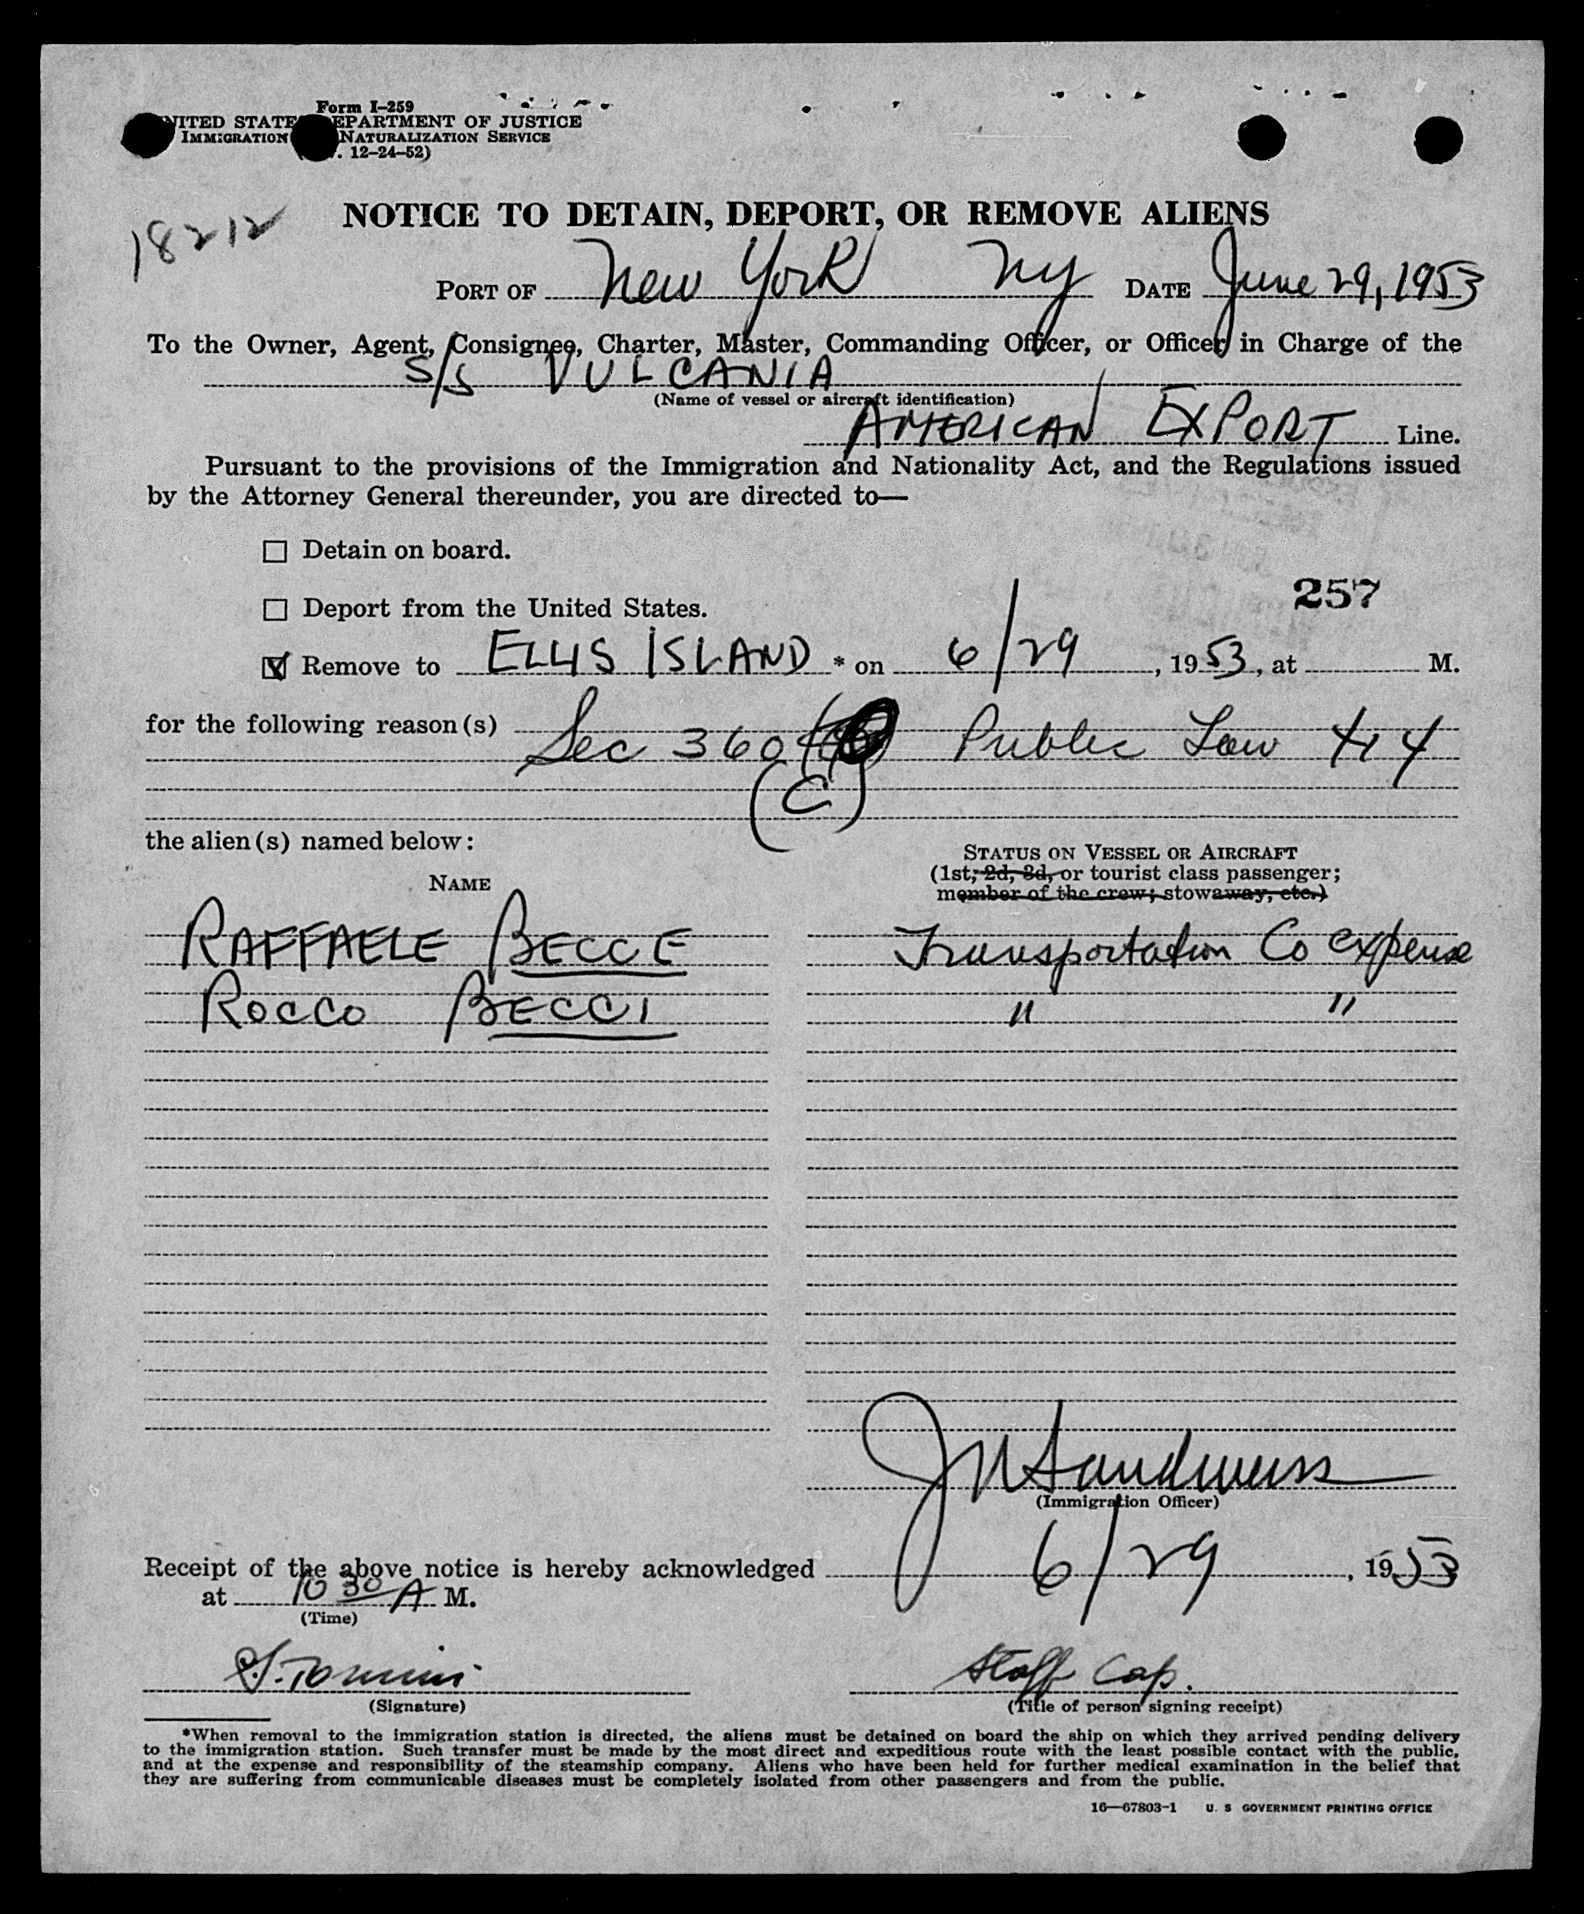 Form I-259
UNITED STATES DEPARTMENT OF JUSTICE
IMMIGRATION NATURALIZATION SERVICE
12-24-52)
18212
NOTICE TO DETAIN, DEPORT, OR REMOVE ALIENS
PORT OF New York NY DATE June 29, 1953
To the Owner, Agent, Consignee, Charter, Master, Commanding Officer, or Officer in Charge of the
S/S VULCANIA
(Name of vessel or aircraft identification)
AMERICAN EXPORT Line.
Pursuant to the provisions of the Immigration and Nationality Act, and the Regulations issued
by the Attorney General thereunder, you are directed to—
☐ Detain on board.
257
☐ Deport from the United States.
☑ Remove to ELLIS ISLAND * on 6/29, 1953, at M.
for the following reason(s) Sec 360 (C) Public Law 414
the alien(s) named below:
STATUS ON VESSEL OR AIRCRAFT
(1st, 2d, 3d, or tourist class passenger;
member of the crew; stowaway, etc.)
NAME
RAFFAELE BECCE Transportation Co expense
ROCCO BECCI " "
(Immigration Officer)
Receipt of the above notice is hereby acknowledged 6/29, 1953
at 10 30 A M.
(Time)
Staff Cap.
(Signature) (Title of person signing receipt)
*When removal to the immigration station is directed, the aliens must be detained on board the ship on which they arrived pending delivery
to the immigration station. Such transfer must be made by the most direct and expeditious route with the least possible contact with the public,
and at the expense and responsibility of the steamship company. Aliens who have been held for further medical examination in the belief that
they are suffering from communicable diseases must be completely isolated from other passengers and from the public.
16—67803-1 U. S GOVERNMENT PRINTING OFFICE